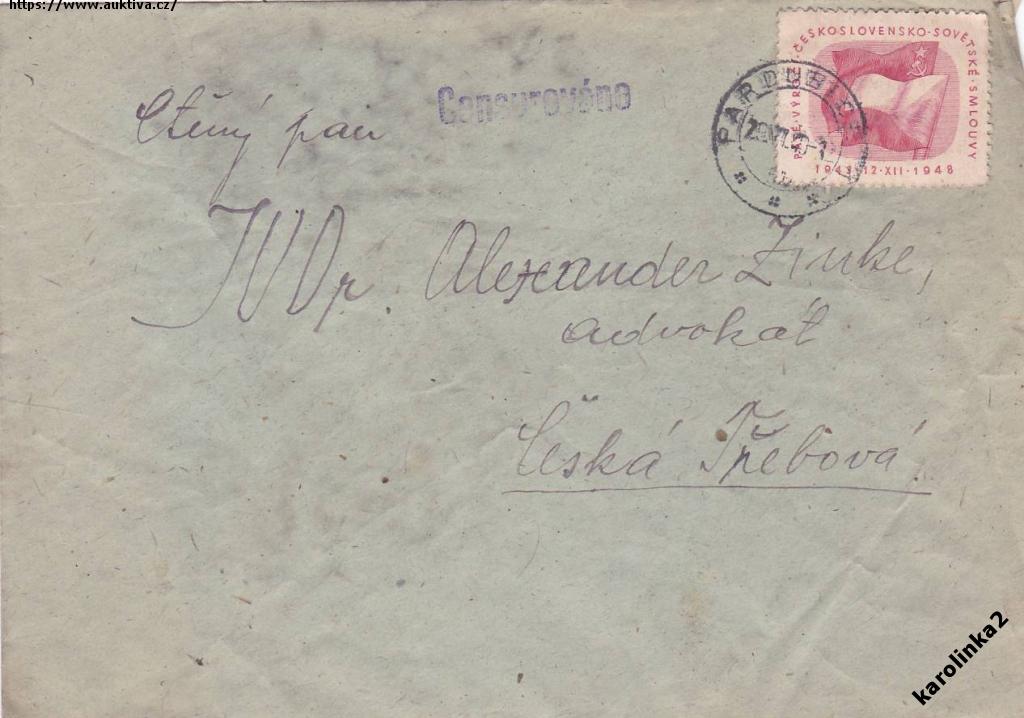 https://www.auktiva.cz/
PÁTÉ VÝROČÍ ČESKOSLOVENSKO-SOVĚTSKÉ SMLOUVY
1943·12·XII·1948
PARDUBICE
Censurováno
Ctěný pan
JUDr. Alexander Zinke,
advokát
Česká Třebová.
karolinka2